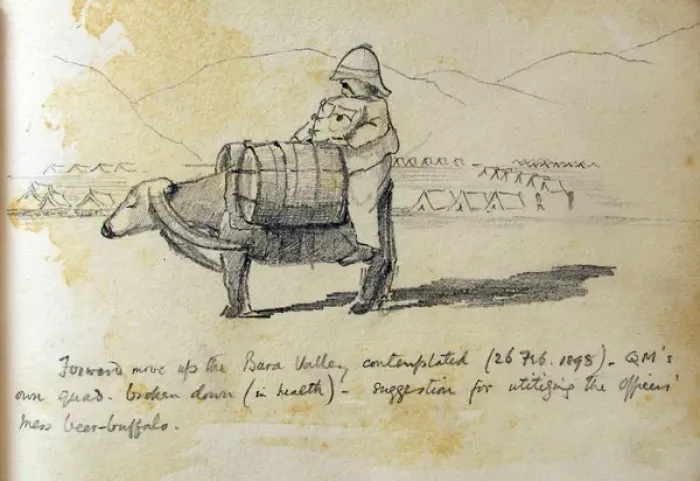 Forward move up the Bara Valley contemplated (26 Feb. 1898). QM's
own quad. broken down (in health) - suggestion for utilizing the Officers'
Mess beer-buffalo.